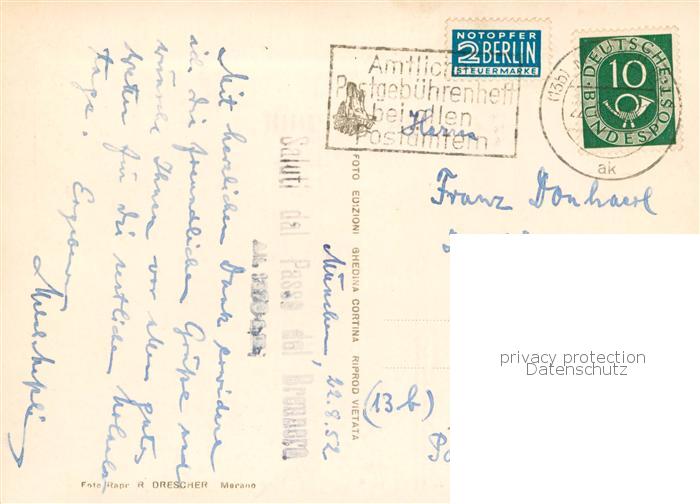 NOTOPFER
2 BERLIN
STEUERMARKE
DEUTSCHE BUNDESPOST
10
(13b)
ak
Amtliche
Postgebührenheft
bei allen
Postämtern
Herrn
Franz
(13b)
privacy protection
Datenschutz
München, 22.8.52
Mit herzlichem Dank erwidere
ich die freundlichen Grüße und
wünsche Ihnen vor allem gutes
Wetter für die restlichen Urlaubs
tage.
Ergebenst
Saluti dal Passo del Brennero
FOTO EDIZIONI GHEDINA CORTINA RIPROD VIETATA
Foto Rapr. R DRESCHER Merano